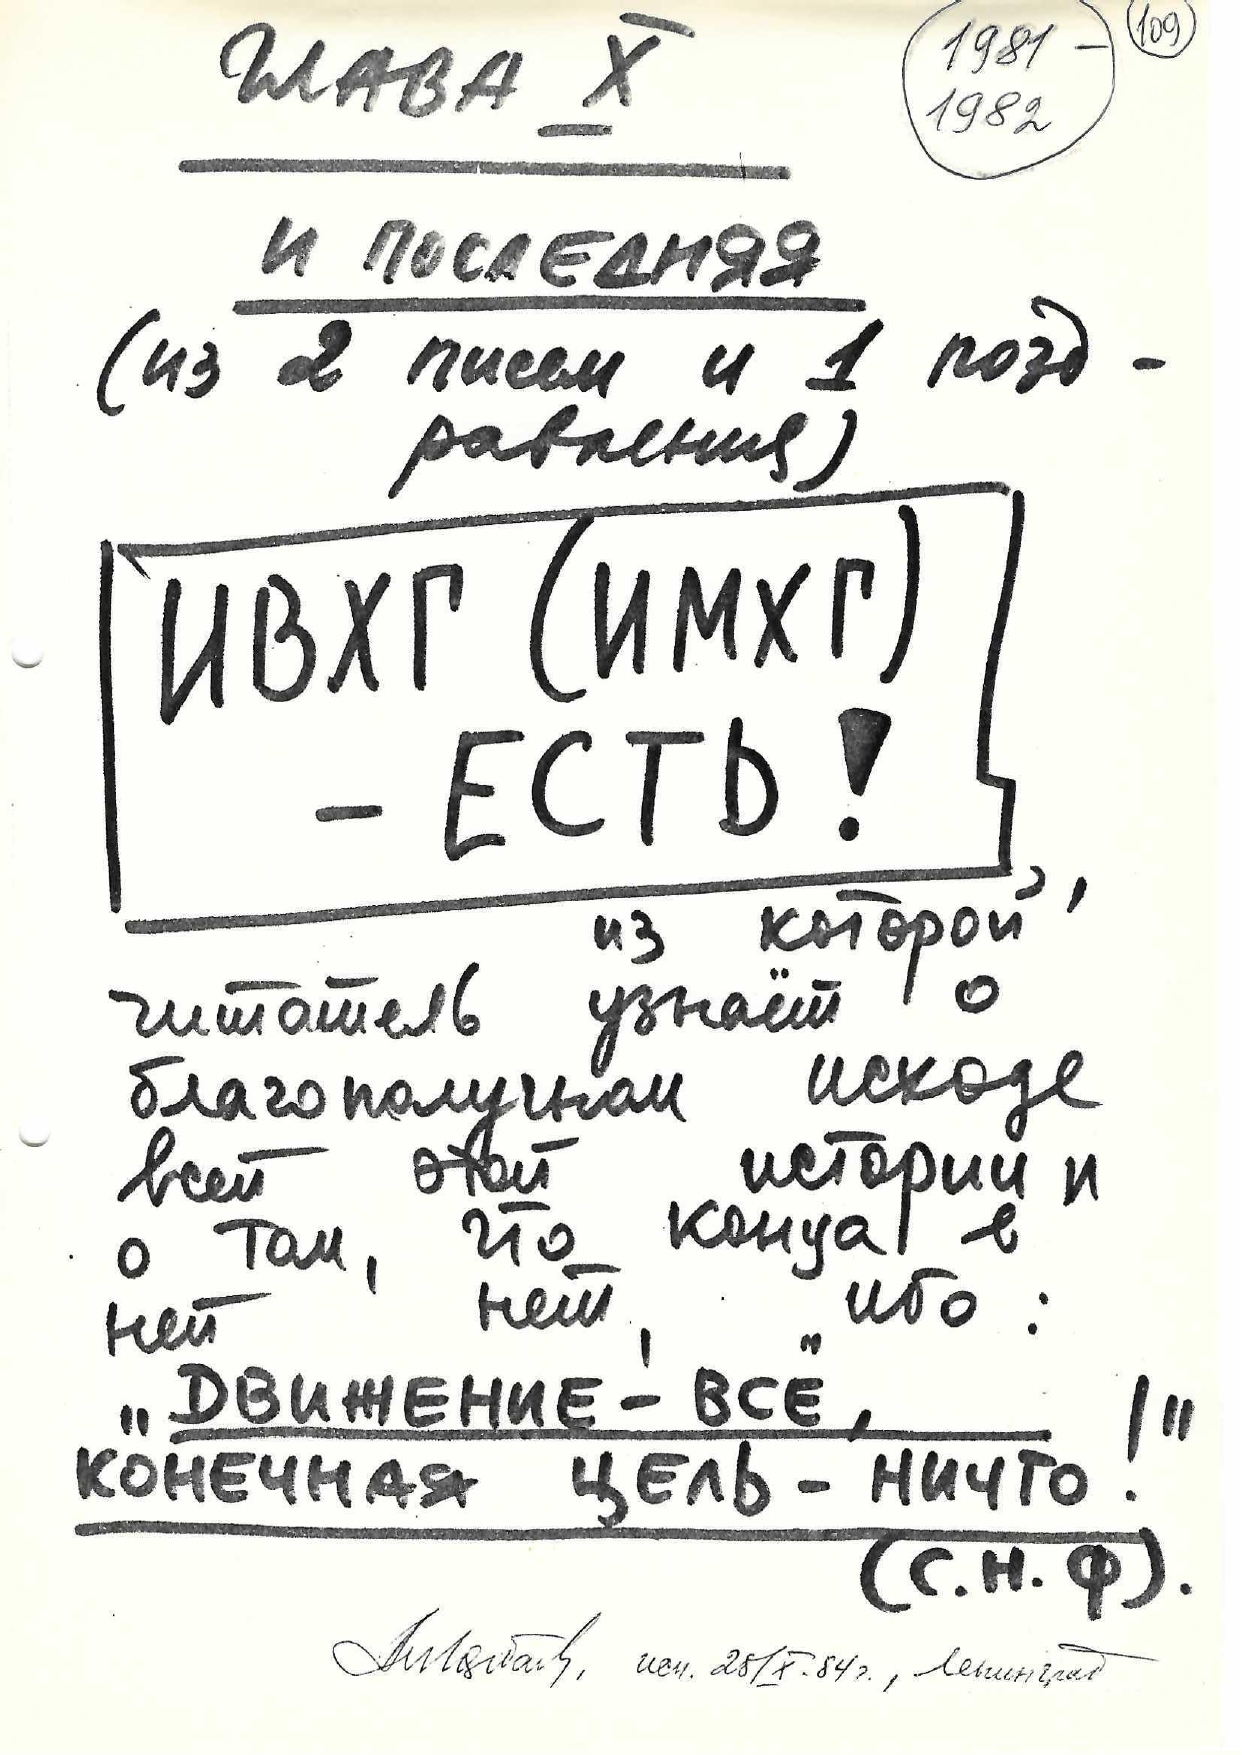 ГЛАВА X
1981 -
1982
109
И ПОСЛЕДНЯЯ
(из 2 писем и 1 позд-
равления)
ИВХГ (ИМХГ)
- ЕСТЬ!
из которой,
читатель узнаёт о
благополучном исходе
всей этой истории и
о том, что конца в
ней нет, ибо:
„ДВИЖЕНИЕ - ВСЁ,
КОНЕЧНАЯ ЦЕЛЬ - НИЧТО!"
(С.Н.Ф).
исп. 28/X.84г., Ленинград